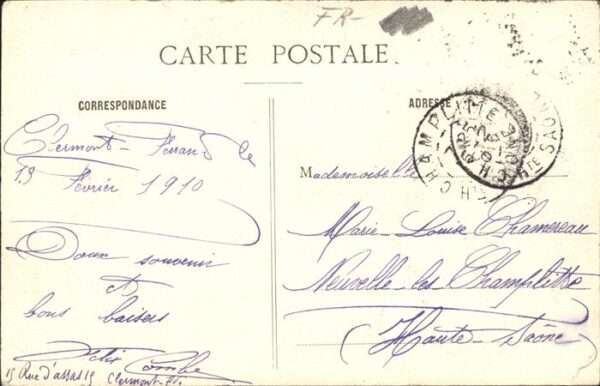 FR-
CARTE POSTALE
CORRESPONDANCE
ADRESSE
CHAMPLITTE
HTE SAONE
Clermont-Ferrand le
13 Février 1910
Doux souvenir
et
bons baisers
Combe
15 Rue d'assas 15 Clermont-Fd.
Mademoiselle
Marie-Louise Chamereau
Neuvelle-les-Champlitte
(Haute-Saône)